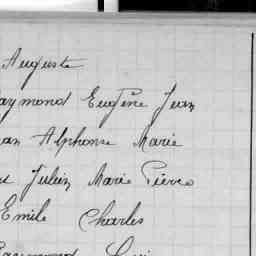 Auguste
aymond Eugène Jean
an Alphonse Marie
Julien Marie Pierre
Emile Charles